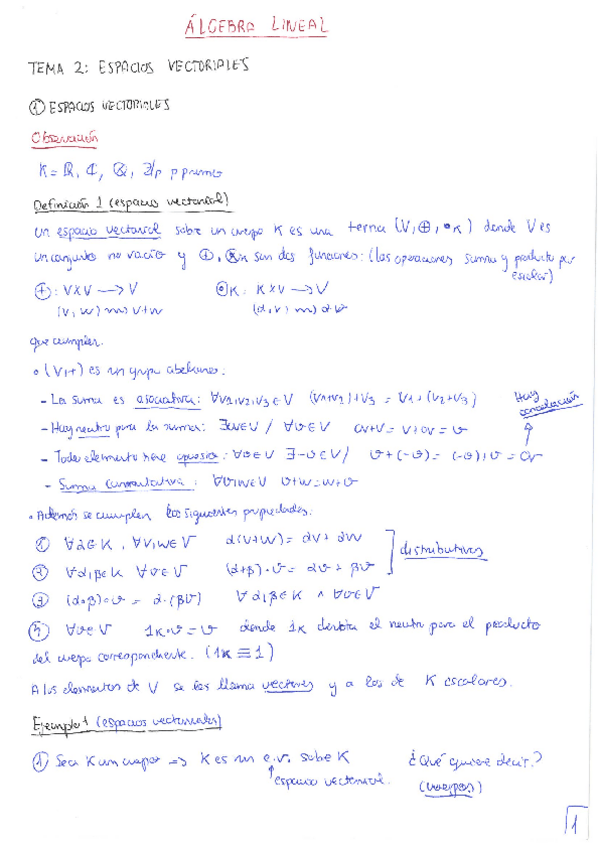 ÁLGEBRA LINEAL
TEMA 2: ESPACIOS VECTORIALES
① ESPACIOS VECTORIALES
Observación
K = ℝ, ℂ, ℚ, ℤ/p p primo
Definición 1 (espacio vectorial)
Un espacio vectorial sobre un cuerpo K es una terna (V, ⊕, •K) donde V es
un conjunto no vacío y ⊕, son dos funciones: (las operaciones suma y producto por
escalar)
⊕: V×V → V ⊙K: K×V → V
(v, w) ⇝ v+w (α, v) ⇝ αv
que cumplen:
• (V, +) es un grupo abeliano:
- La suma es asociativa: ∀v1,v2,v3 ∈ V (v1+v2)+v3 = v1+(v2+v3)
Hay
cancelación
- Hay neutro para la suma: ∃ ∈ V / ∀v ∈ V
- Todo elemento tiene opuesto: ∀v ∈ V ∃ -v ∈ V / v+(-v) = (-v)+v =
- Suma conmutativa: ∀v,w ∈ V v+w = w+v
• Además se cumplen las siguientes propiedades:
① ∀α ∈ K, ∀v,w ∈ V α(v+w) = αv + αw
② ∀α,β ∈ K ∀v ∈ V (α+β)·v = αv + βv
distributivas
③ (α·β)·v = α·(βv) ∀α,β ∈ K ∧ ∀v ∈ V
④ ∀v ∈ V 1K·v = v donde 1K denota el neutro para el producto
del cuerpo correspondiente. (1K ≡ 1)
A los elementos de V se les llama vectores y a los de K escalares.
Ejemplo 1 (espacios vectoriales)
① Sea K un cuerpo ⇒ K es un e.v. sobre K ¿Qué quiere decir?
↑ espacio vectorial. (cuerpos)
1